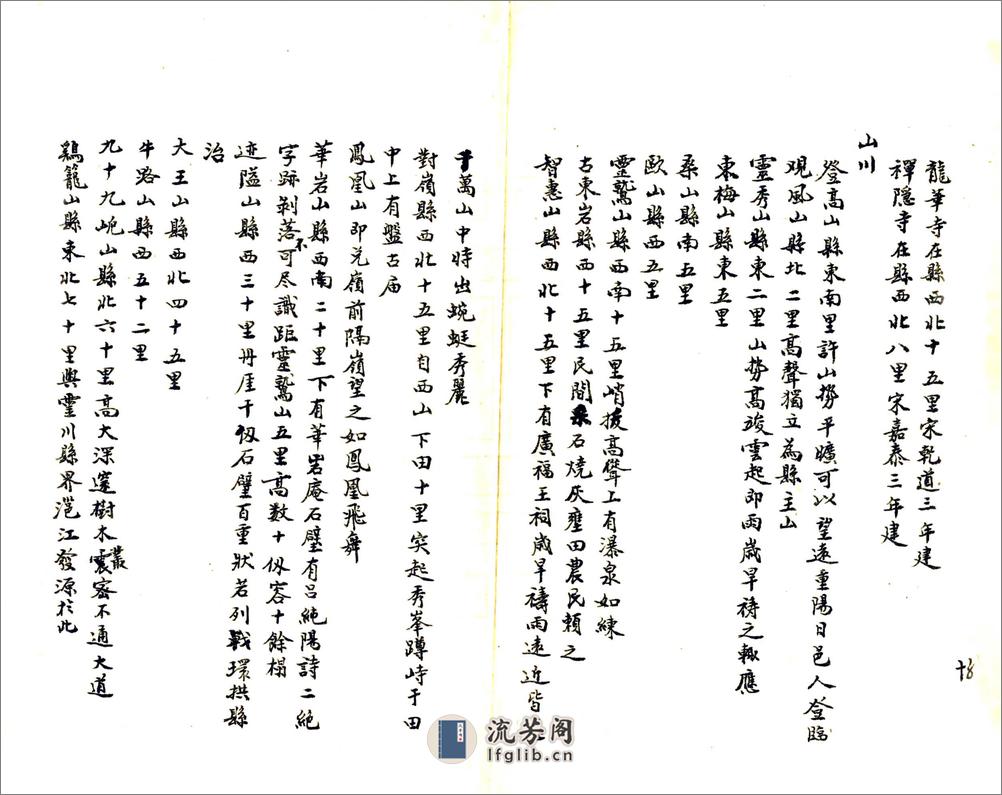 龍華寺在縣西北十五里宋乾道三年建
禪隱寺在縣西北八里宋嘉泰三年建
山川
登高山縣東南里許山勢平曠可以望遠重陽日邑人登臨
观風山縣北二里高聲獨立為縣主山
靈秀山縣東二里山勢高竣雲起即雨歲旱祷之輒應
東梅山縣東五里
桑山縣南五里
歐山縣西五里
靈鷲山縣西南十五里峭拔高聳上有瀑泉如練
古東岩縣西十五里民間采石燒灰壅田農民賴之
智惠山縣西北十五里下有廣福王祠歲旱禱雨遠近皆
于萬山中時出蜿蜒秀麗
對嶺縣西北十五里自西山下田十里突起秀峯蹲峙于田
中上有盤古庙
鳳凰山即兑嶺前隔嶺望之如鳳凰飛舞
華岩山縣西南二十里下有華岩庵石壁有吕純陽詩二絶
字跡剥落不可尽識距靈鷲山五里高数十仭容十餘榻
迹隘山縣西三十里丹崖千仭石壁百重狀若列戟環拱縣
治
大王山縣西北四十五里
牛路山縣西五十二里
九十九岘山縣北六十里高大深邃樹木叢密不通大道
鷄籠山縣東北七十里與靈川縣界滟江發源於此
18
流芳阁
lfglib.cn